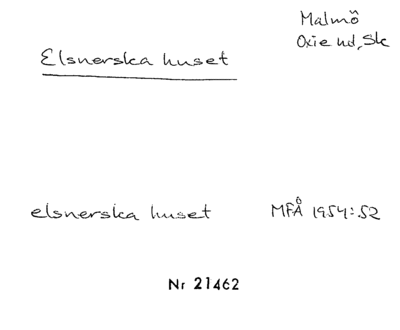 Malmö
Oxie hd, Sk
Elsnerska huset
elsnerska huset MFÅ 1954:52
Nr 21462